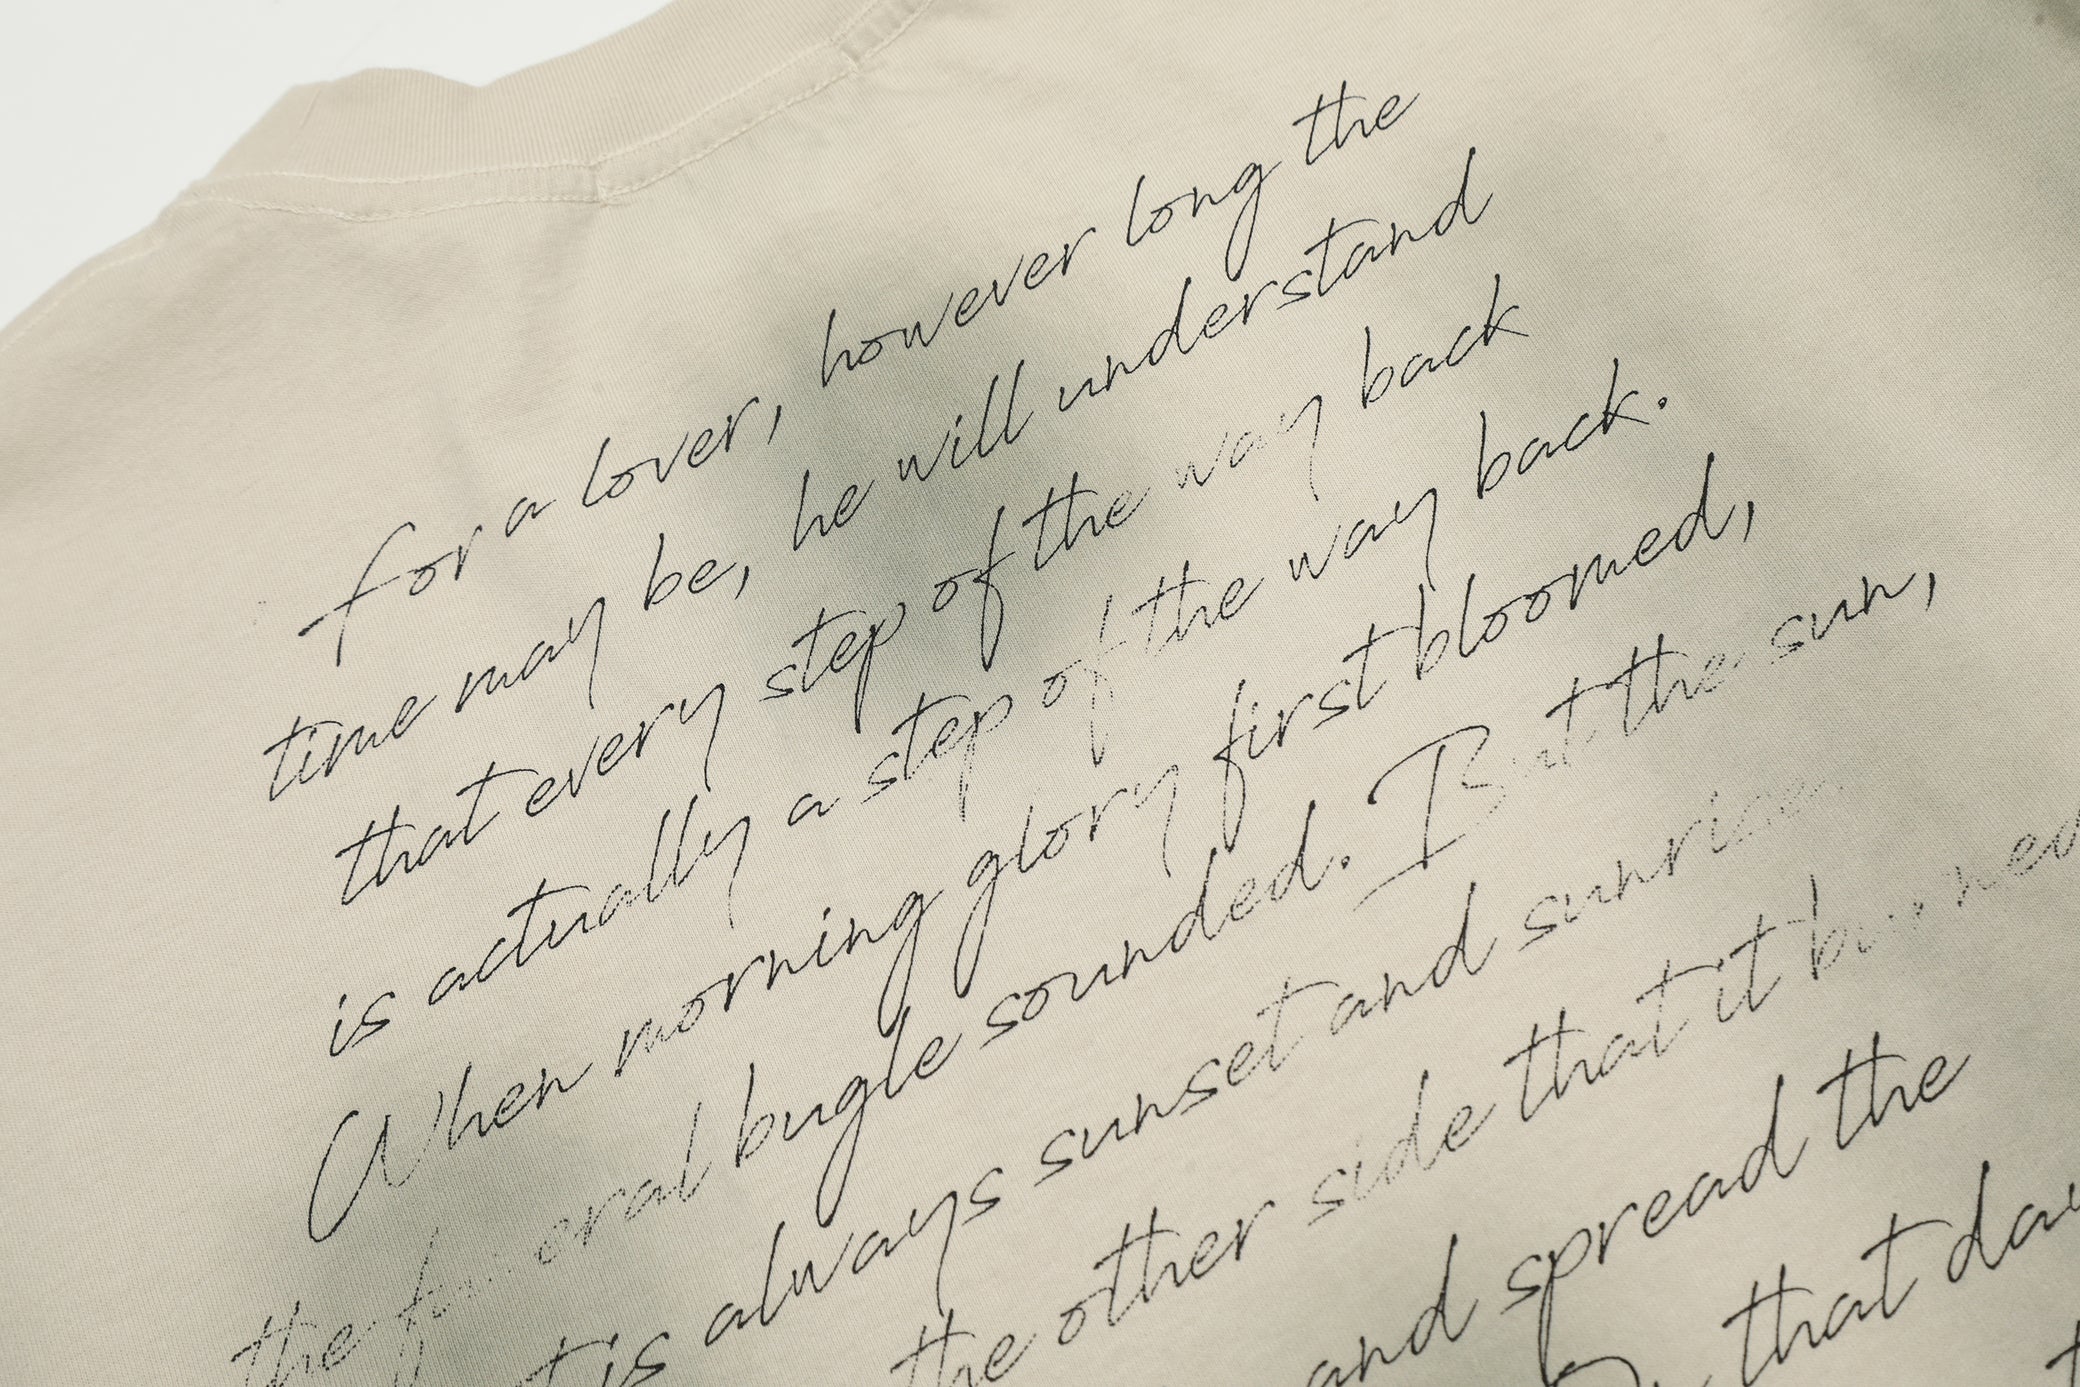 for a lover, however long the
time may be, he will understand
that every step of the way back
is actually a step of the way back.
When morning glory first bloomed,
the funeral bugle sounded. But the sun,
is always sunset and sunrise.
the other side that it burned
and spread the
that